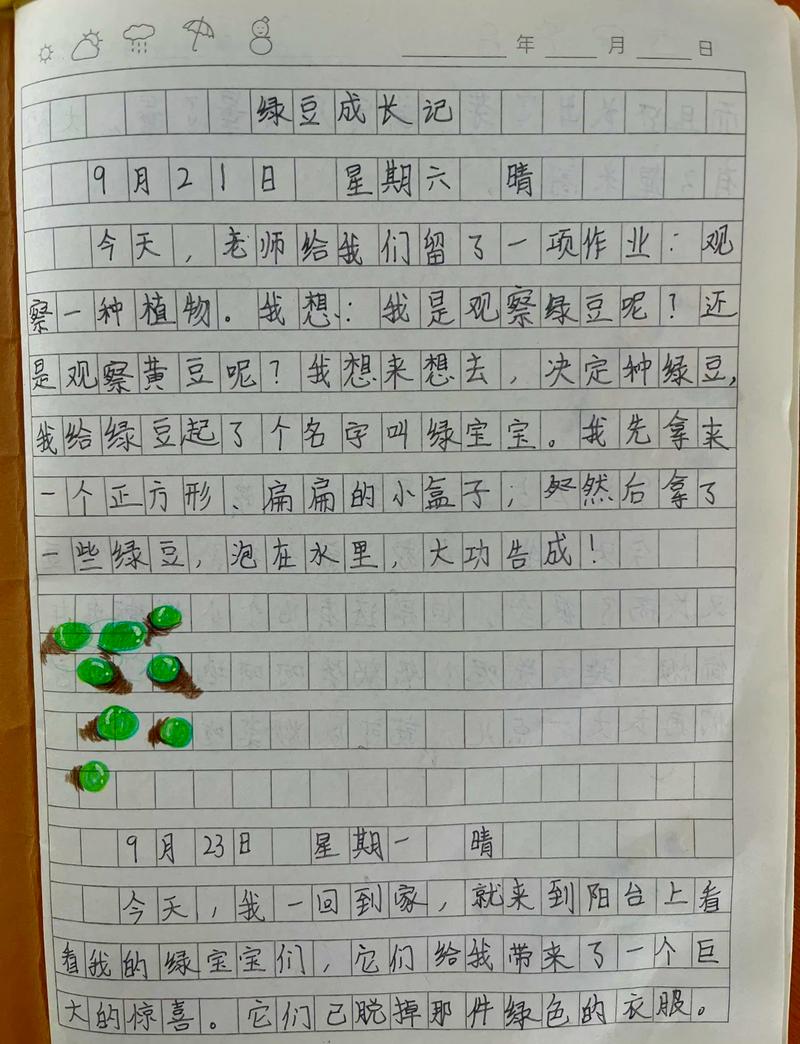 年 月 日
绿豆成长记
9月21日 星期六 晴
今天，老师给我们留了一项作业：观
察一种植物。我想：我是观察绿豆呢？还
是观察黄豆呢？我想来想去，决定种绿豆，
我给绿豆起了个名字叫绿宝宝。我先拿来
一个正方形、扁扁的小盒子；然后拿了
一些绿豆，泡在水里，大功告成！
9月23日 星期一 晴
今天，我一回到家，就来到阳台上看
看我的绿宝宝们，它们给我带来了一个巨
大的惊喜。它们已脱掉那件绿色的衣服。